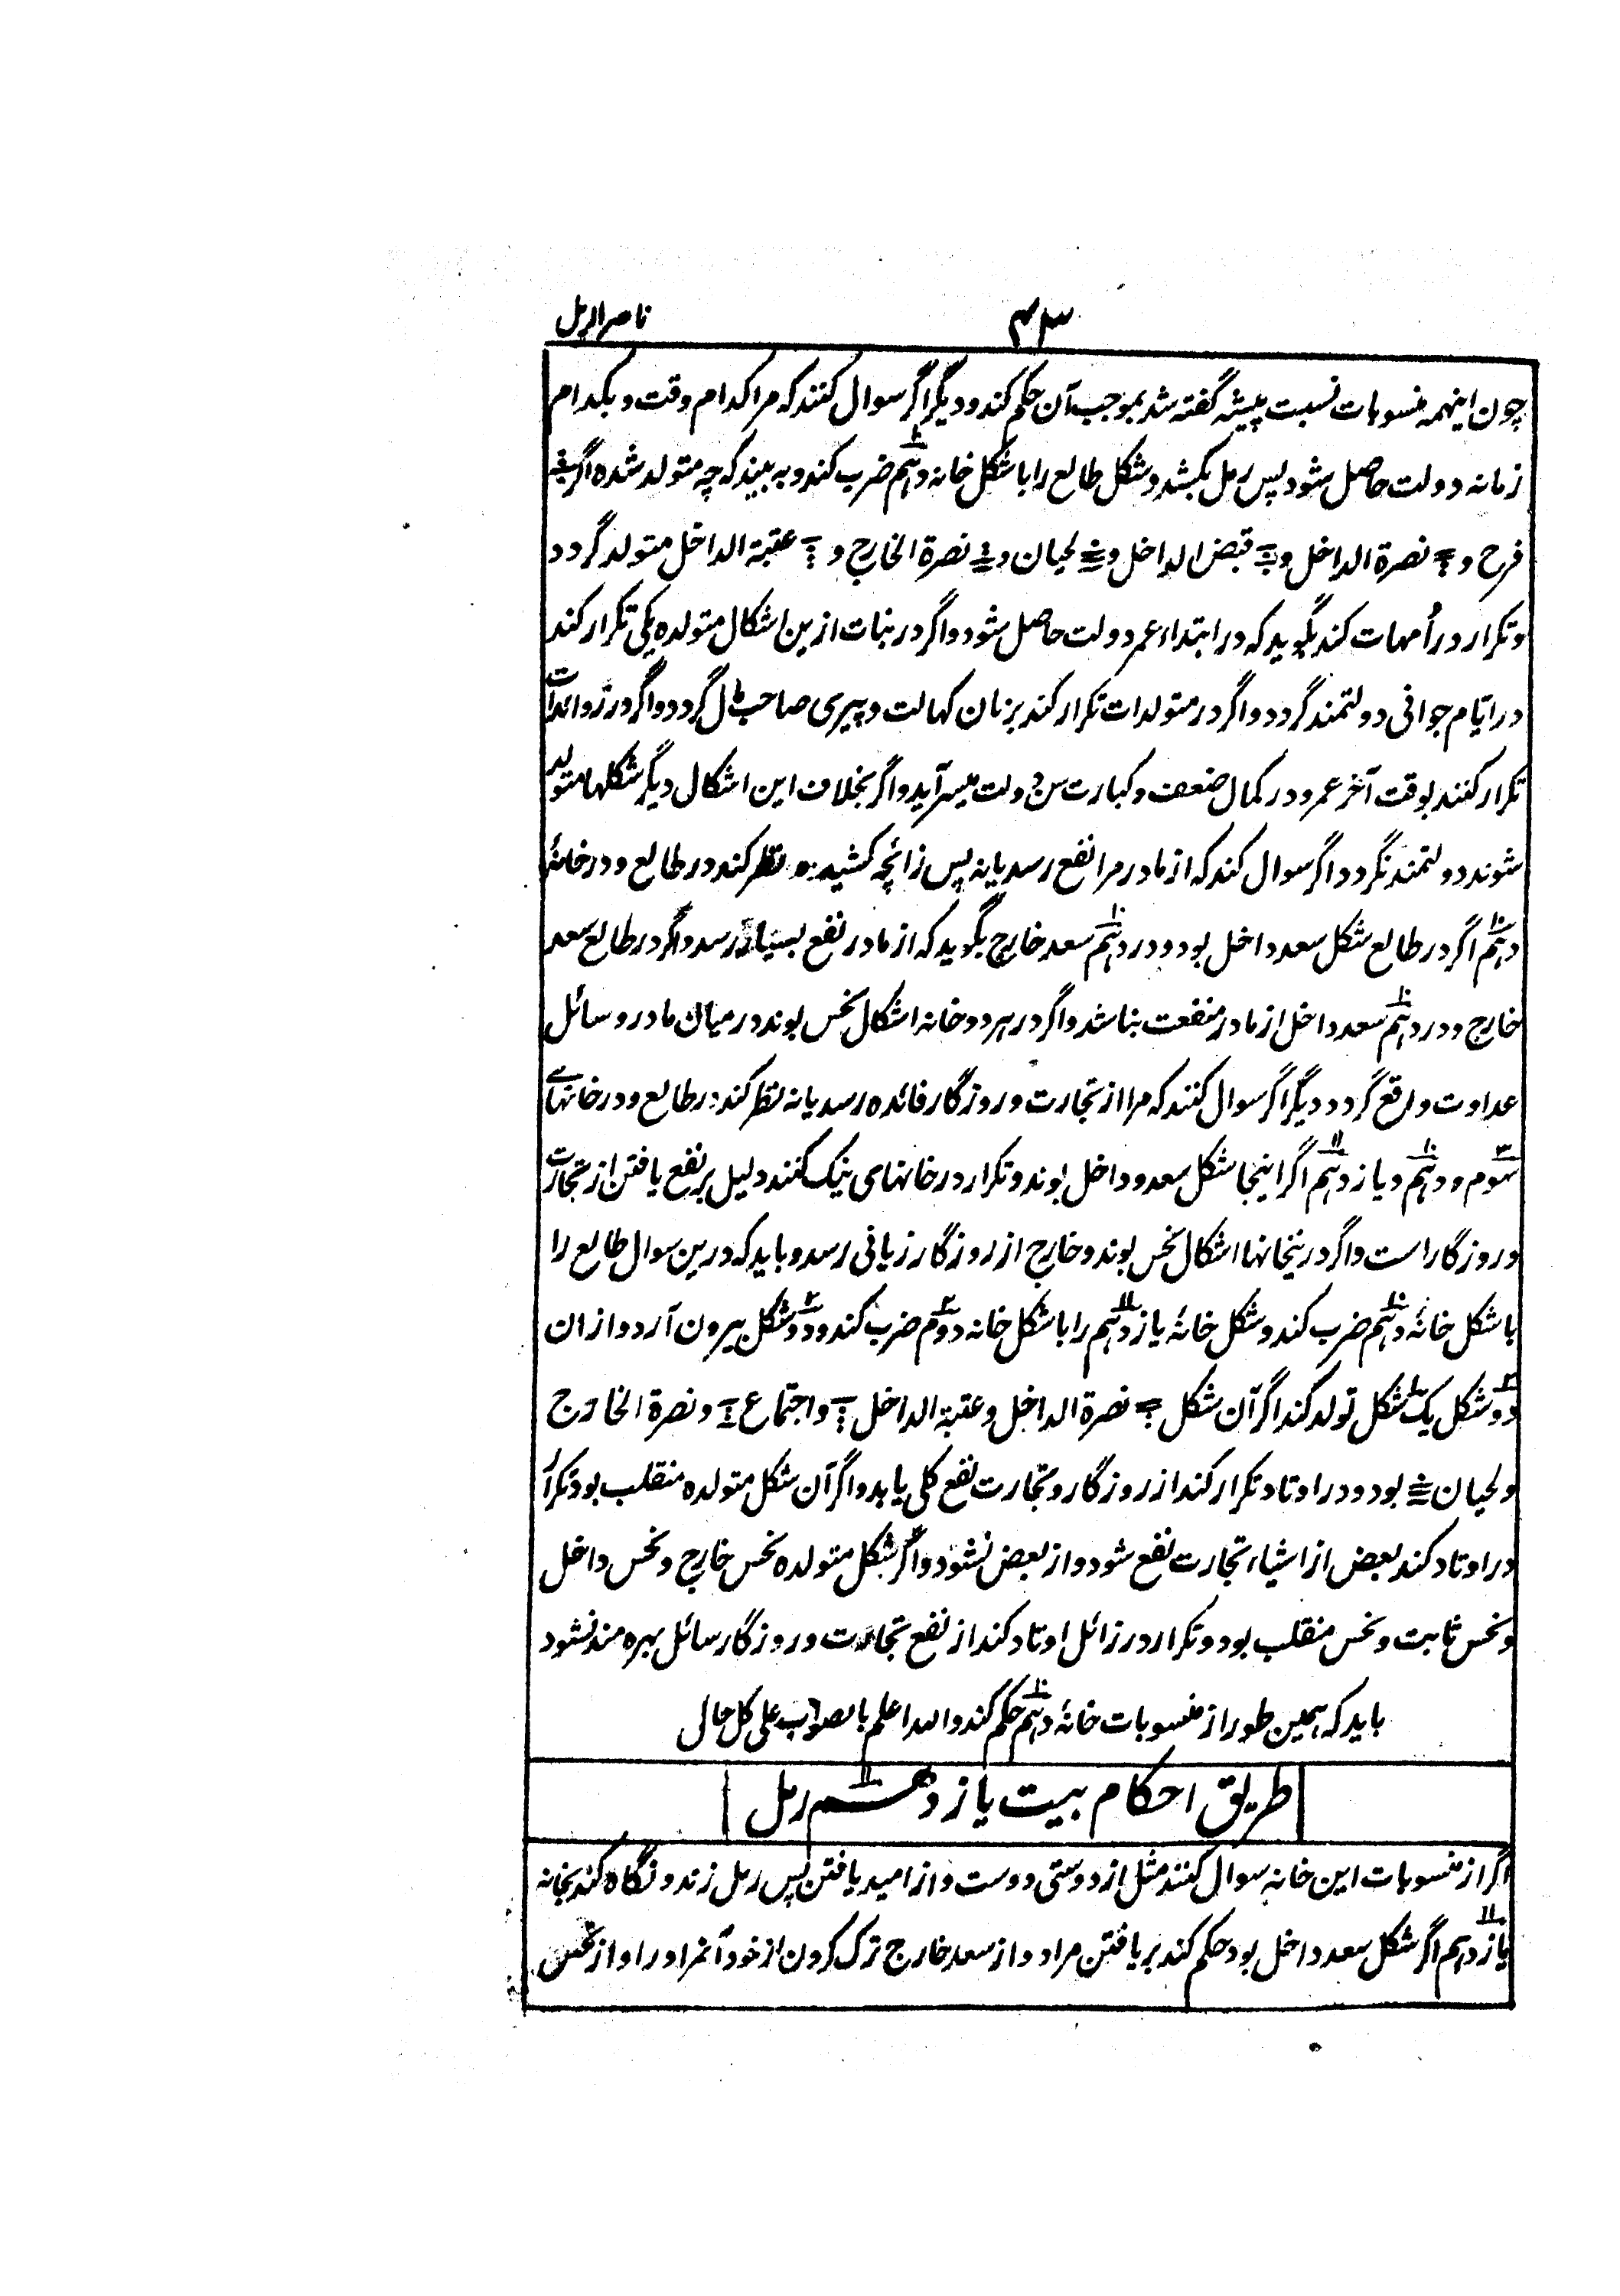 ناصرالرمل ۴۳
چون اینهمه منسوبات نسبت پیشه گفته شد بموجب آن حکم کند و دیگر اگر سوال کنند که مرا کدام وقت و بکدام
زمانه دولت حاصل شود پس رمل بکشد و شکل طالع را با شکل خانه دهم ضرب کند و به بیند که چه متولد شده اگر
فرح و نصرة الداخل و قبض الداخل و لحیان و نصرة الخارج و عقبة الداخل متولد گردد
و تکرار در اُمهات کند بگوید که در ابتداء عمر دولت حاصل شود و اگر در بنات ازین اشکال متولده یکی تکرار کند
در ایّام جوانی دولتمند گردد و اگر در متولدات تکرار کند بزمان کهالت و پیری صاحب مال گردد و اگر در زوائدات
تکرار کنند بوقت آخر عمر و در کمال ضعف و کبارت سن دولت میسر آید و اگر بخلاف این اشکال دیگر شکلها متولد
شوند دولتمند نگردد اگر سوال کند که از مادر مرا نفع رسد یا نه پس زائچه کشیده نظر کند در طالع و در خانهٔ
دهم اگر در طالع شکل سعد داخل بود و در دهم سعد خارج بگوید که از مادر نفع بسیار رسد و اگر در طالع سعد
خارج و در دهم سعد داخل از مادر منفعت نباشد و اگر در هر دو خانه اشکال نحس بوند در میان مادر و سائل
عداوت واقع گردد و دیگر اگر سوال کنند که مرا از تجارت و روزگار فائده رسد یا نه نظر کند در طالع و در خانهاے
سوم و دهم و یازدهم اگر اینجا شکل سعد و داخل بوند و تکرار در خانهای نیک کنند دلیل بر نفع یافتن از تجارت
و روزگار است و اگر درینخانها اشکال نحس بوند و خارج از روزگار زیانی رسد و باید که درین سوال طالع را
با شکل خانهٔ دهم ضرب کند و شکل خانهٔ یازدهم را با شکل خانه دوم ضرب کند و دو شکل بیرون آرد و از ان
دو شکل یک شکل تولد کند اگر آن شکل نصرة الداخل و عقبة الداخل و اجتماع و نصرة الخارج
و لحیان بود و در اوتاد تکرار کند از روزگار و تجارت نفع کلی یابد و اگر آن شکل متولده منقلب بود تکرار
در اوتاد کند بعض از اشیاء تجارت نفع شود و از بعض نشود و اگر شکل متولده نحس خارج و نحس داخل
و نحس ثابت و نحس منقلب بود و تکرار در زائل اوتاد کند از نفع تجارت و روزگار سائل بهره مند نشود
باید که همین طور از منسوبات خانهٔ دهم حکم کند والله اعلم بالصواب علی کل حال
طریق احکام بیت یازدهم رمل
اگر از منسوبات این خانه سوال کنند مثل از دوستی دوست و از امید یافتن پس رمل زند و نگاه کند بخانه
یازدهم اگر شکل سعد داخل بود حکم کند بر یافتن مراد و از سعد خارج ترک کردن از خود آنمراد را و از نحس